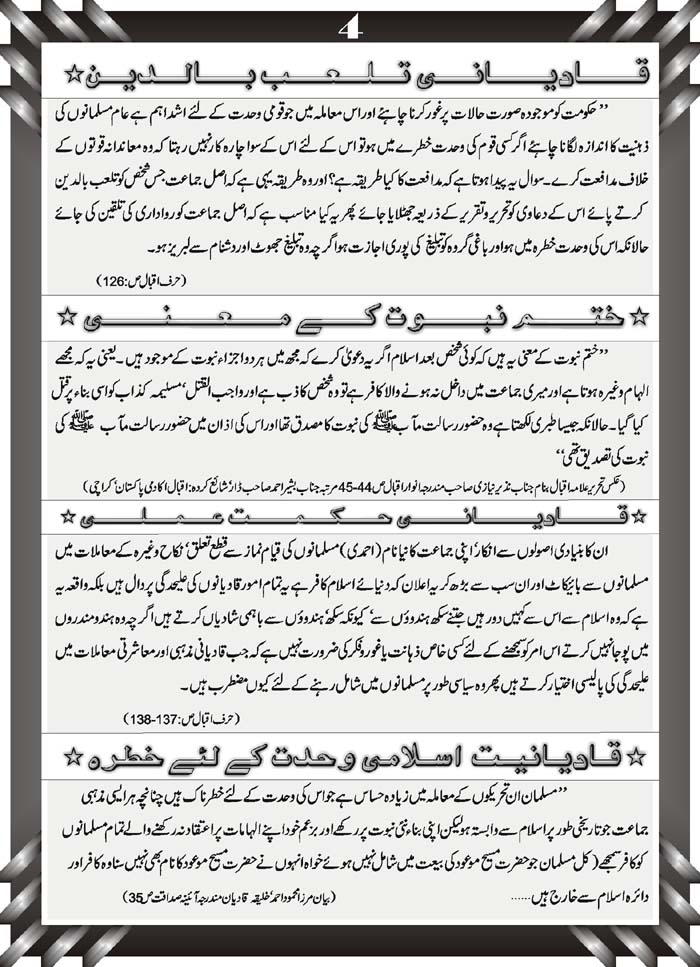 4
قادیانی تلعب بالدین☆
’’حکومت کو موجودہ صورت حالات پر غور کرنا چاہئے اور اس معاملہ میں جو قومی وحدت کے لئے اشد اہم ہے عام مسلمانوں کی
ذہنیت کا اندازہ لگانا چاہئے اگر کسی قوم کی وحدت خطرے میں ہو تو اس کے لئے اس کے سوا چارہ کار نہیں رہتا کہ وہ معاندانہ قوتوں کے
خلاف مدافعت کرے۔ سوال یہ پیدا ہوتا ہے کہ مدافعت کا کیا طریقہ ہے؟ اور وہ طریقہ یہی ہے کہ اصل جماعت جس شخص کو تلعب بالدین
کرتے پائے اس کے دعاوی کو تحریر و تقریر کے ذریعہ جھٹلایا جائے پھر یہ کیا مناسب ہے کہ اصل جماعت کو رواداری کی تلقین کی جائے
حالانکہ اس کی وحدت خطرہ میں ہو اور باغی گروہ کو تبلیغ کی پوری اجازت ہو اگرچہ وہ تبلیغ جھوٹ اور دشنام سے لبریز ہو۔
(حرف اقبال ص:126)
☆ ختم نبوت کے معنی ☆
’’ختم نبوت کے معنی یہ ہیں کہ کوئی شخص بعد اسلام اگر یہ دعویٰ کرے کہ مجھ میں ہر دو اجزاء نبوت کے موجود ہیں۔ یعنی یہ کہ مجھے
الہام وغیرہ ہوتا ہے اور میری جماعت میں داخل نہ ہونے والا کافر ہے تو وہ شخص کاذب ہے اور واجب القتل‘ مسلیمہ کذاب کو اسی بناء پر قتل
کیا گیا۔ حالانکہ جیسا طبری لکھتا ہے وہ حضور رسالت مآب ﷺ کی نبوت کا مصدق تھا اور اس کی اذان میں حضور رسالت مآب ﷺ کی
نبوت کی تصدیق تھی‘‘
(عکس تحریر علامہ اقبال بنام جناب نذیر نیازی صاحب مندرجہ انوار اقبال ص44-45 مرتبہ جناب بشیر احمد صاحب ڈار‘ شائع کردہ: اقبال اکادمی پاکستان‘ کراچی)
☆ قادیانی حکمت عملی ☆
ان کا بنیادی اصولوں سے انکار‘ اپنی جماعت کا نیا نام (احمدی) مسلمانوں کی قیام نماز سے قطع تعلق‘ نکاح وغیرہ کے معاملات میں
مسلمانوں سے بائیکاٹ اور ان سب سے بڑھ کر یہ اعلان کہ دنیائے اسلام کافر ہے یہ تمام امور قادیانوں کی علیحدگی پر دال ہیں بلکہ واقعہ یہ
ہے کہ وہ اسلام سے اس سے کہیں دور ہیں جتنے سکھ ہندوؤں سے‘ کیونکہ سکھ‘ ہندوؤں سے باہمی شادیاں کرتے ہیں اگرچہ وہ ہندو مندروں
میں پوجا نہیں کرتے اس امر کو سمجھنے کے لئے کسی خاص ذہانت یا غور و فکر کی ضرورت نہیں ہے کہ جب قادیانی مذہبی اور معاشرتی معاملات میں
علیحدگی کی پالیسی اختیار کرتے ہیں پھر وہ سیاسی طور پر مسلمانوں میں شامل رہنے کے لئے کیوں مضطرب ہیں۔
(حرف اقبال ص:137-138)
☆ قادیانیت اسلامی وحدت کے لئے خطرہ ☆
’’مسلمان ان تحریکوں کے معاملہ میں زیادہ حساس ہے جو اس کی وحدت کے لئے خطرناک ہیں چنانچہ ہر ایسی مذہبی
جماعت جو تاریخی طور پر اسلام سے وابستہ ہو لیکن اپنی بناء نئی نبوت پر رکھے اور بزعم خود اپنے الہامات پر اعتقاد نہ رکھنے والے تمام مسلمانوں
کو کافر سمجھے (کل مسلمان جو حضرت مسیح موعود کی بیعت میں شامل نہیں ہوئے خواہ انہوں نے حضرت مسیح موعود کا نام بھی نہیں سنا وہ کافر اور
دائرہ اسلام سے خارج ہیں...... (بیان مرزا محمود احمد‘ خلیفہ قادیان مندرجہ آئینہ صداقت ص35)